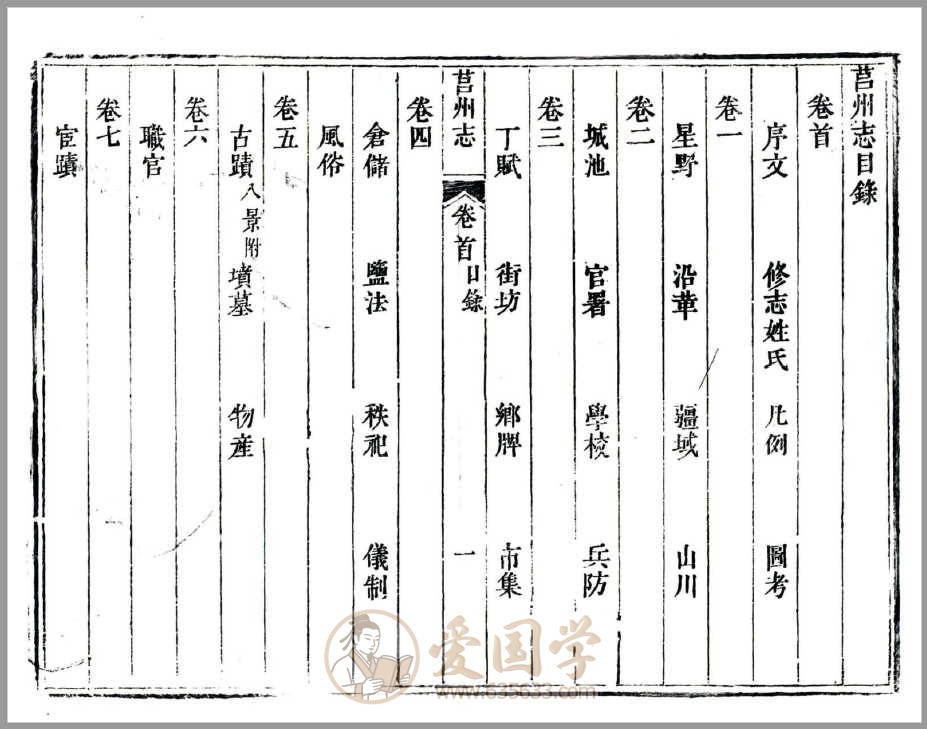 莒州志目錄
卷首
序文 修志姓氏 凡例 圖考
卷一
星野 沿革 疆域 山川
卷二
城池 官署 學校 兵防
卷三
丁賦 街坊 鄉牌 市集
莒州志 卷首 目錄 一
卷四
倉儲 鹽法 秩祀 儀制
風俗
卷五
古蹟 八景附 墳墓 物產
卷六
職官
卷七
宦蹟
爱国学
www.635633.com